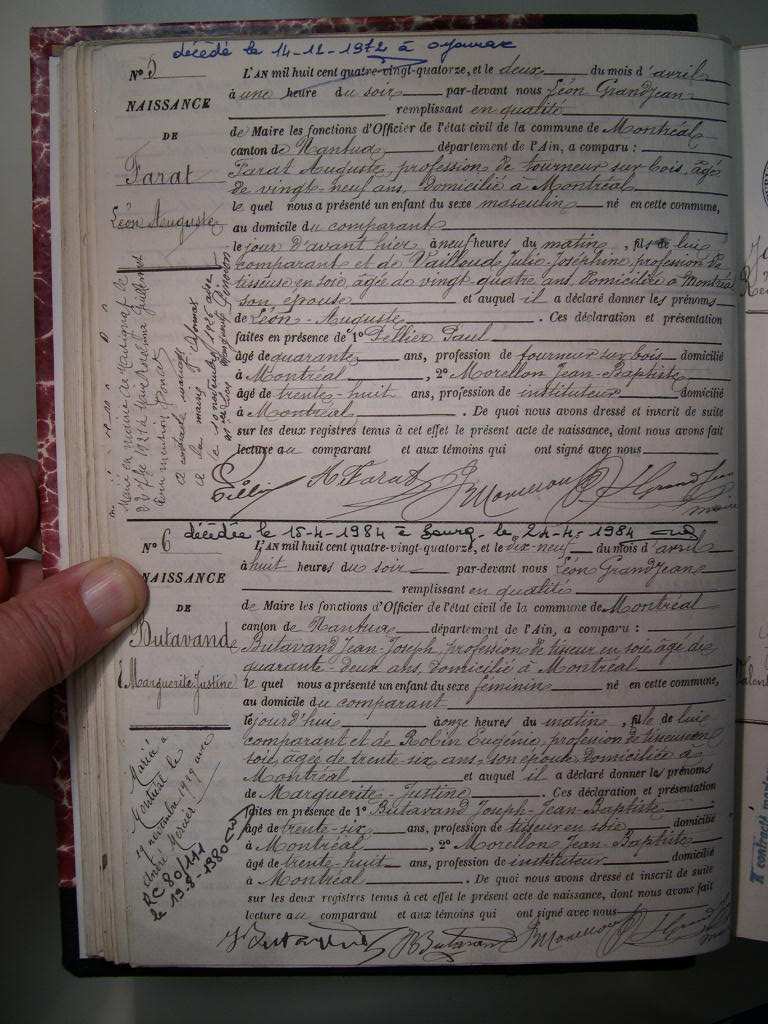 décédé le 14-12-1972 à Oyonnax
N° 5
NAISSANCE
DE
Farat
Léon Auguste
L'AN mil huit cent quatre-vingt-quatorze, et le deux du mois d'avril
à une heure du soir par-devant nous Léon Grandjean
remplissant en qualité
de Maire les fonctions d'Officier de l'état civil de la commune de Montréal
canton de Nantua département de l'Ain, a comparu :
Farat Auguste, profession de tourneur sur bois, âgé
de vingt neuf ans, Domicilié à Montréal
le quel nous a présenté un enfant du sexe masculin né en cette commune,
au domicile du comparant
le jour d'avant hier à neuf heures du matin, fils de lui
comparant et de Vailloud Julie Joséphine, profession de
tisseuse en soie, âgée de vingt quatre ans, Domiciliée à Montréal
son épouse et auquel il a déclaré donner les prénoms
de Léon-Auguste. Ces déclaration et présentation
faites en présence de 1° Pellier Paul
âgé de quarante ans, profession de tourneur sur bois domicilié
à Montréal, 2° Morellon Jean-Baptiste
âgé de trente-huit ans, profession de instituteur domicilié
à Montréal. De quoi nous avons dressé et inscrit de suite
sur les deux registres tenus à cet effet le présent acte de naissance, dont nous avons fait
lecture au comparant et aux témoins qui ont signé avec nous
A Farat Morellon Grandjean
maire
décédée le 15-4-1984 à Bourg - le 24-4-1984
N° 6
NAISSANCE
DE
Butavand
Marguerite Justine
L'AN mil huit cent quatre-vingt-quatorze, et le dix-neuf du mois d'avril
à huit heures du soir par-devant nous Léon Grandjean
remplissant en qualité
de Maire les fonctions d'Officier de l'état civil de la commune de Montréal
canton de Nantua département de l'Ain, a comparu :
Butavand Jean-Joseph, profession de tisseur en soie âgé de
quarante-deux ans, Domicilié à Montréal
le quel nous a présenté un enfant du sexe féminin né en cette commune,
au domicile du comparant
lejourd'hui à onze heures du matin, fille de lui
comparant et de Robin Eugénie, profession de tisseuse en
soie, âgée de trente six ans, son épouse Domiciliée à
Montréal et auquel il a déclaré donner les prénoms
de Marguerite-Justine. Ces déclaration et présentation
faites en présence de 1° Butavand Joseph-Jean-Baptiste
âgé de trente-six ans, profession de tisseur en soie domicilié
à Montréal, 2° Morellon Jean-Baptiste
âgé de trente-huit ans, profession de instituteur domicilié
à Montréal. De quoi nous avons dressé et inscrit de suite
sur les deux registres tenus à cet effet le présent acte de naissance, dont nous avons fait
lecture au comparant et aux témoins qui ont signé avec nous
Butavand Butavand Morellon Grandjean
maire
Mariée à
Montréal le
19 novembre 1919 avec
André Mercier
RC 80/141
le 19-8-1980